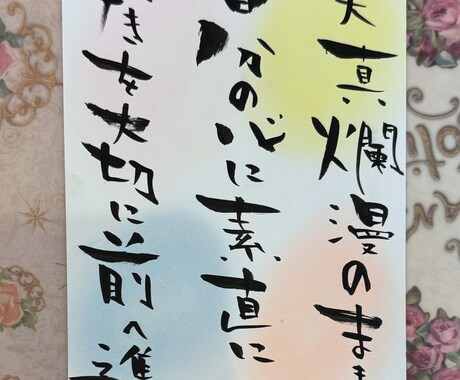 天真爛漫のまま
自分の心に素直に
好きを大切に前へ進